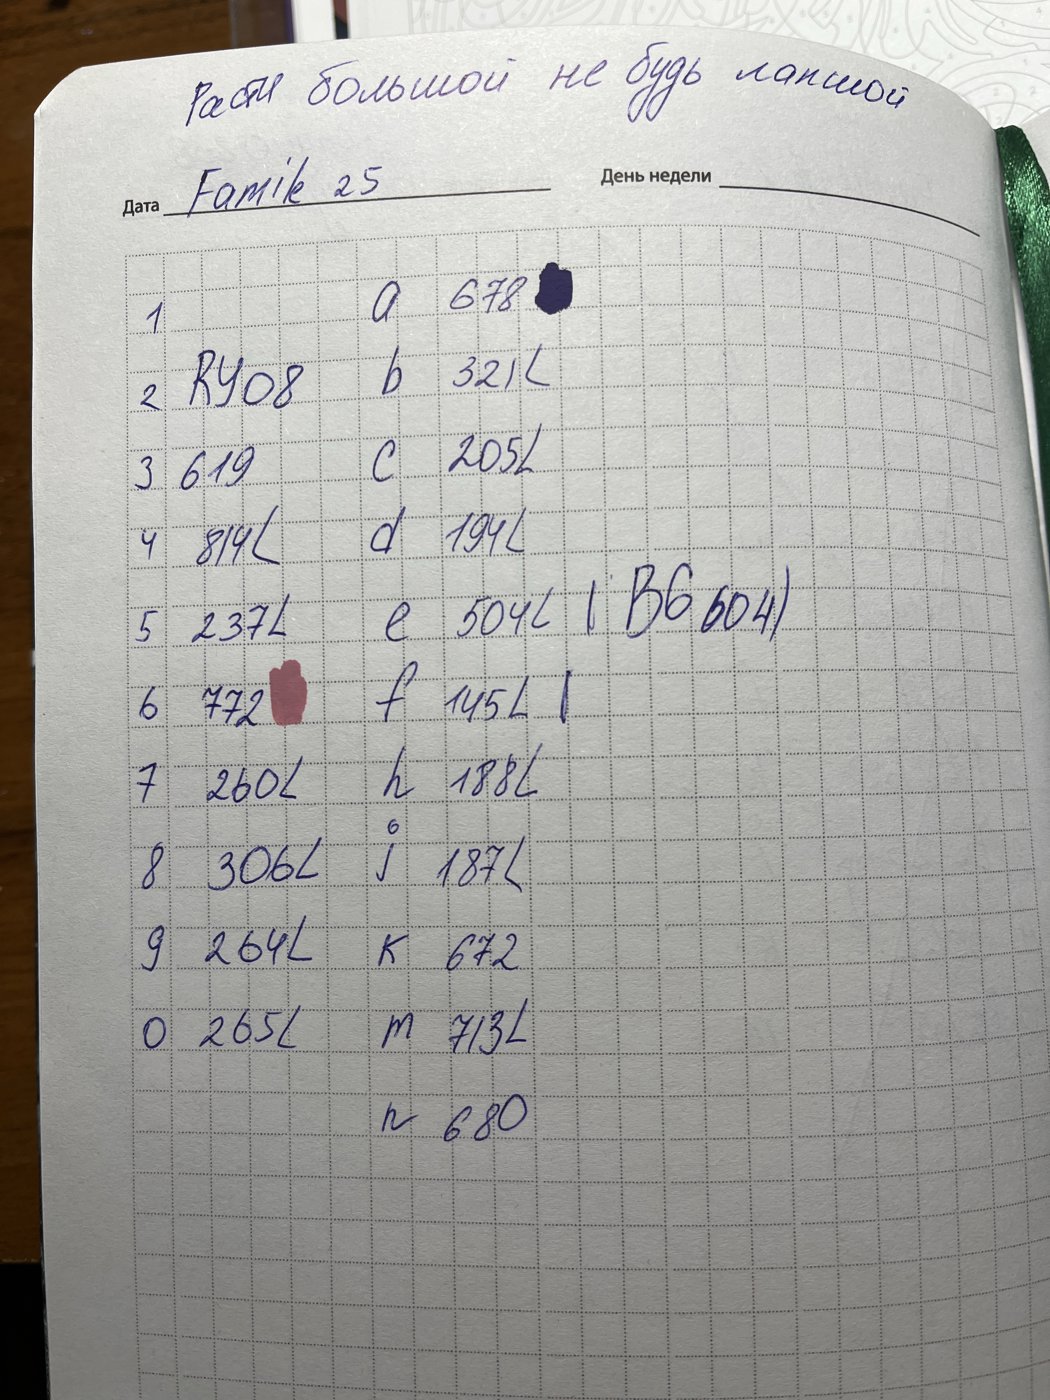 Расти большой не будь лапшой
Дата Famik 25 День недели
1 a 678
2 RY08 b 321L
3 619 c 205L
4 814L d 194L
5 237L e 504L (BG 604)
6 772 f 145L |
7 260L h 188L
8 306L j 187L
9 264L k 672
0 265L m 713L
n 680